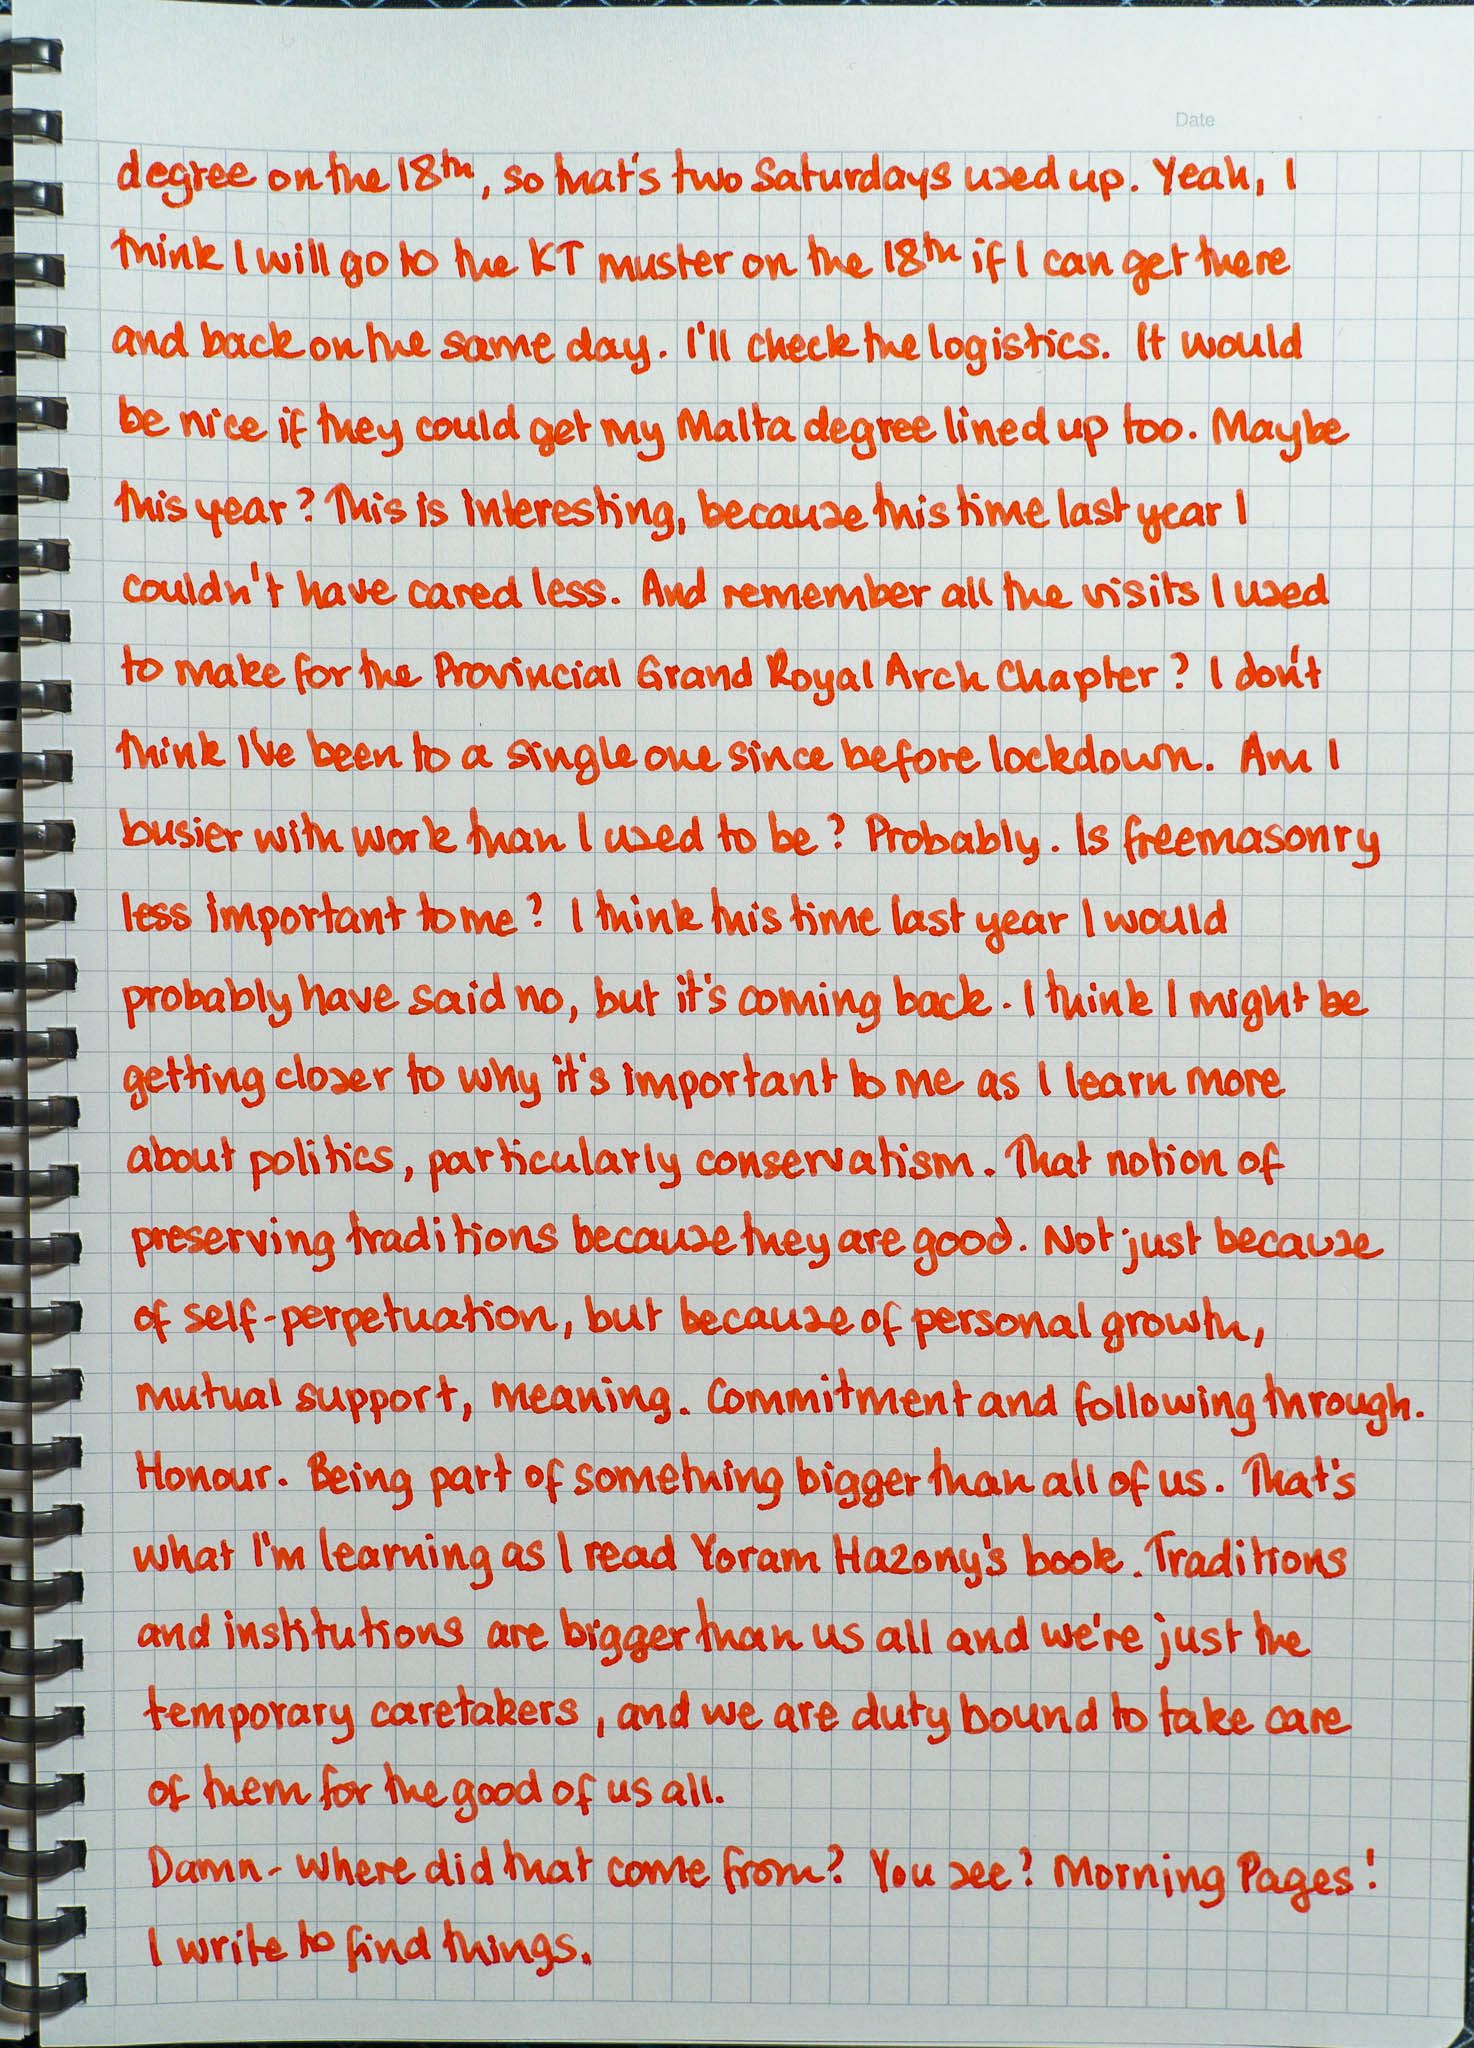 Date
degree on the 18th, so that's two Saturdays used up. Yeah, I
think I will go to the KT muster on the 18th if I can get there
and back on the same day. I'll check the logistics. It would
be nice if they could get my Malta degree lined up too. Maybe
this year? This is interesting, because this time last year I
couldn't have cared less. And remember all the visits I used
to make for the Provincial Grand Royal Arch Chapter? I don't
think I've been to a single one since before lockdown. Am I
busier with work than I used to be? Probably. Is freemasonry
less important to me? I think this time last year I would
probably have said no, but it's coming back. I think I might be
getting closer to why it's important to me as I learn more
about politics, particularly conservatism. That notion of
preserving traditions because they are good. Not just because
of self-perpetuation, but because of personal growth,
mutual support, meaning. Commitment and following through.
Honour. Being part of something bigger than all of us. That's
what I'm learning as I read Yoram Hazony's book. Traditions
and institutions are bigger than us all and we're just the
temporary caretakers, and we are duty bound to take care
of them for the good of us all.
Damn - where did that come from? You see? Morning Pages!
I write to find things.